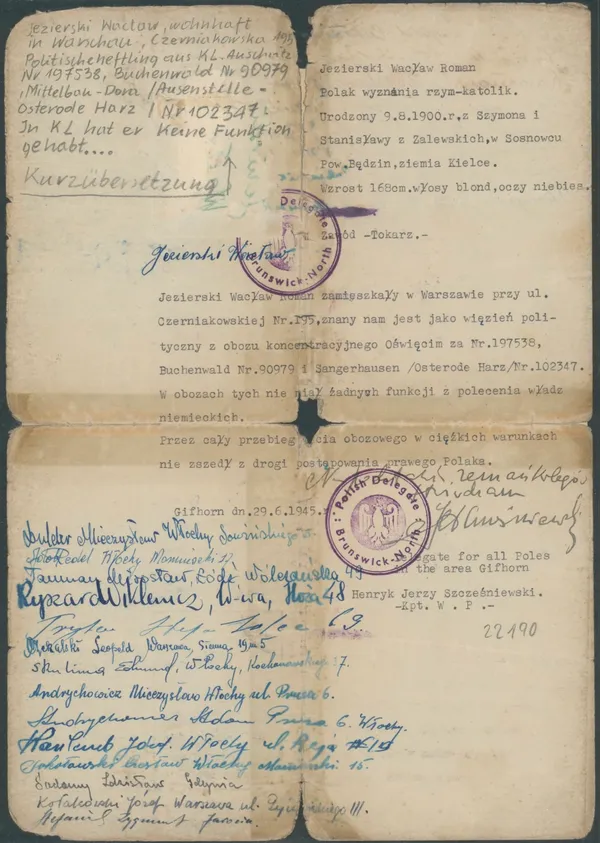 Jezierski Wacław, wohnhaft
in Warschau, Czerniakowska 195
Politischeheftling aus KL-Auschwitz
Nr 197538, Buchenwald Nr 90979
Mittelbau-Dora /Ausenstelle-
Osterode Harz / Nr 102347.
In KL hat er keine Funktion
gehabt....
Kurzübersetzung
Jezierski Wacław Roman
Polak wyznania rzym-katolik.
Urodzony 9.8.1900.r,z Szymona i
Stanisławy z Zalewskich,w Sosnowcu
Pow.Będzin,ziemia Kielce.
Wzrost 168cm.włosy blond,oczy niebies.
Zawód -Tokarz.-
Delegate
Brunswick-North
Jezierski Wacław
Jezierski Wacław Roman zamieszkały w Warszawie przy ul.
Czerniakowskiej Nr.195,znany nam jest jako więzień poli-
tyczny z obozu koncentracyjnego Oświęcim za Nr.197538,
Buchenwald Nr.90979 i Sangerhausen /Osterode Harz/Nr.102347.
W obozach tych nie miał żadnych funkcji z polecenia władz
niemieckich.
Przez cały przebieg życia obozowego w ciężkich warunkach
nie zszedł z drogi postępowania prawego Polaka.
Gifhorn dn.29.6.1945.r
Polish Delegate
Brunswick-North
Delegate for all Poles
in the area Gifhorn
Henryk Jerzy Szcześniewski.
-Kpt. W . P .-
22190
Mieczysław Włochy
Włochy
Łódź 49
Ryszard W-wa, Hoża 48
69
Leopold Warszawa, Sienna 19 m 5
Edmund, Włochy, Kochanowskiego 7.
Andrychowicz Mieczysław Włochy ul. Prusa 6.
Adam Prusa 6. Włochy.
Józef. Włochy ul. Reja
Czesław Włochy 15.
Zdzisław Gdynia
Kołakowski Józef Warszawa ul.
Zygmunt